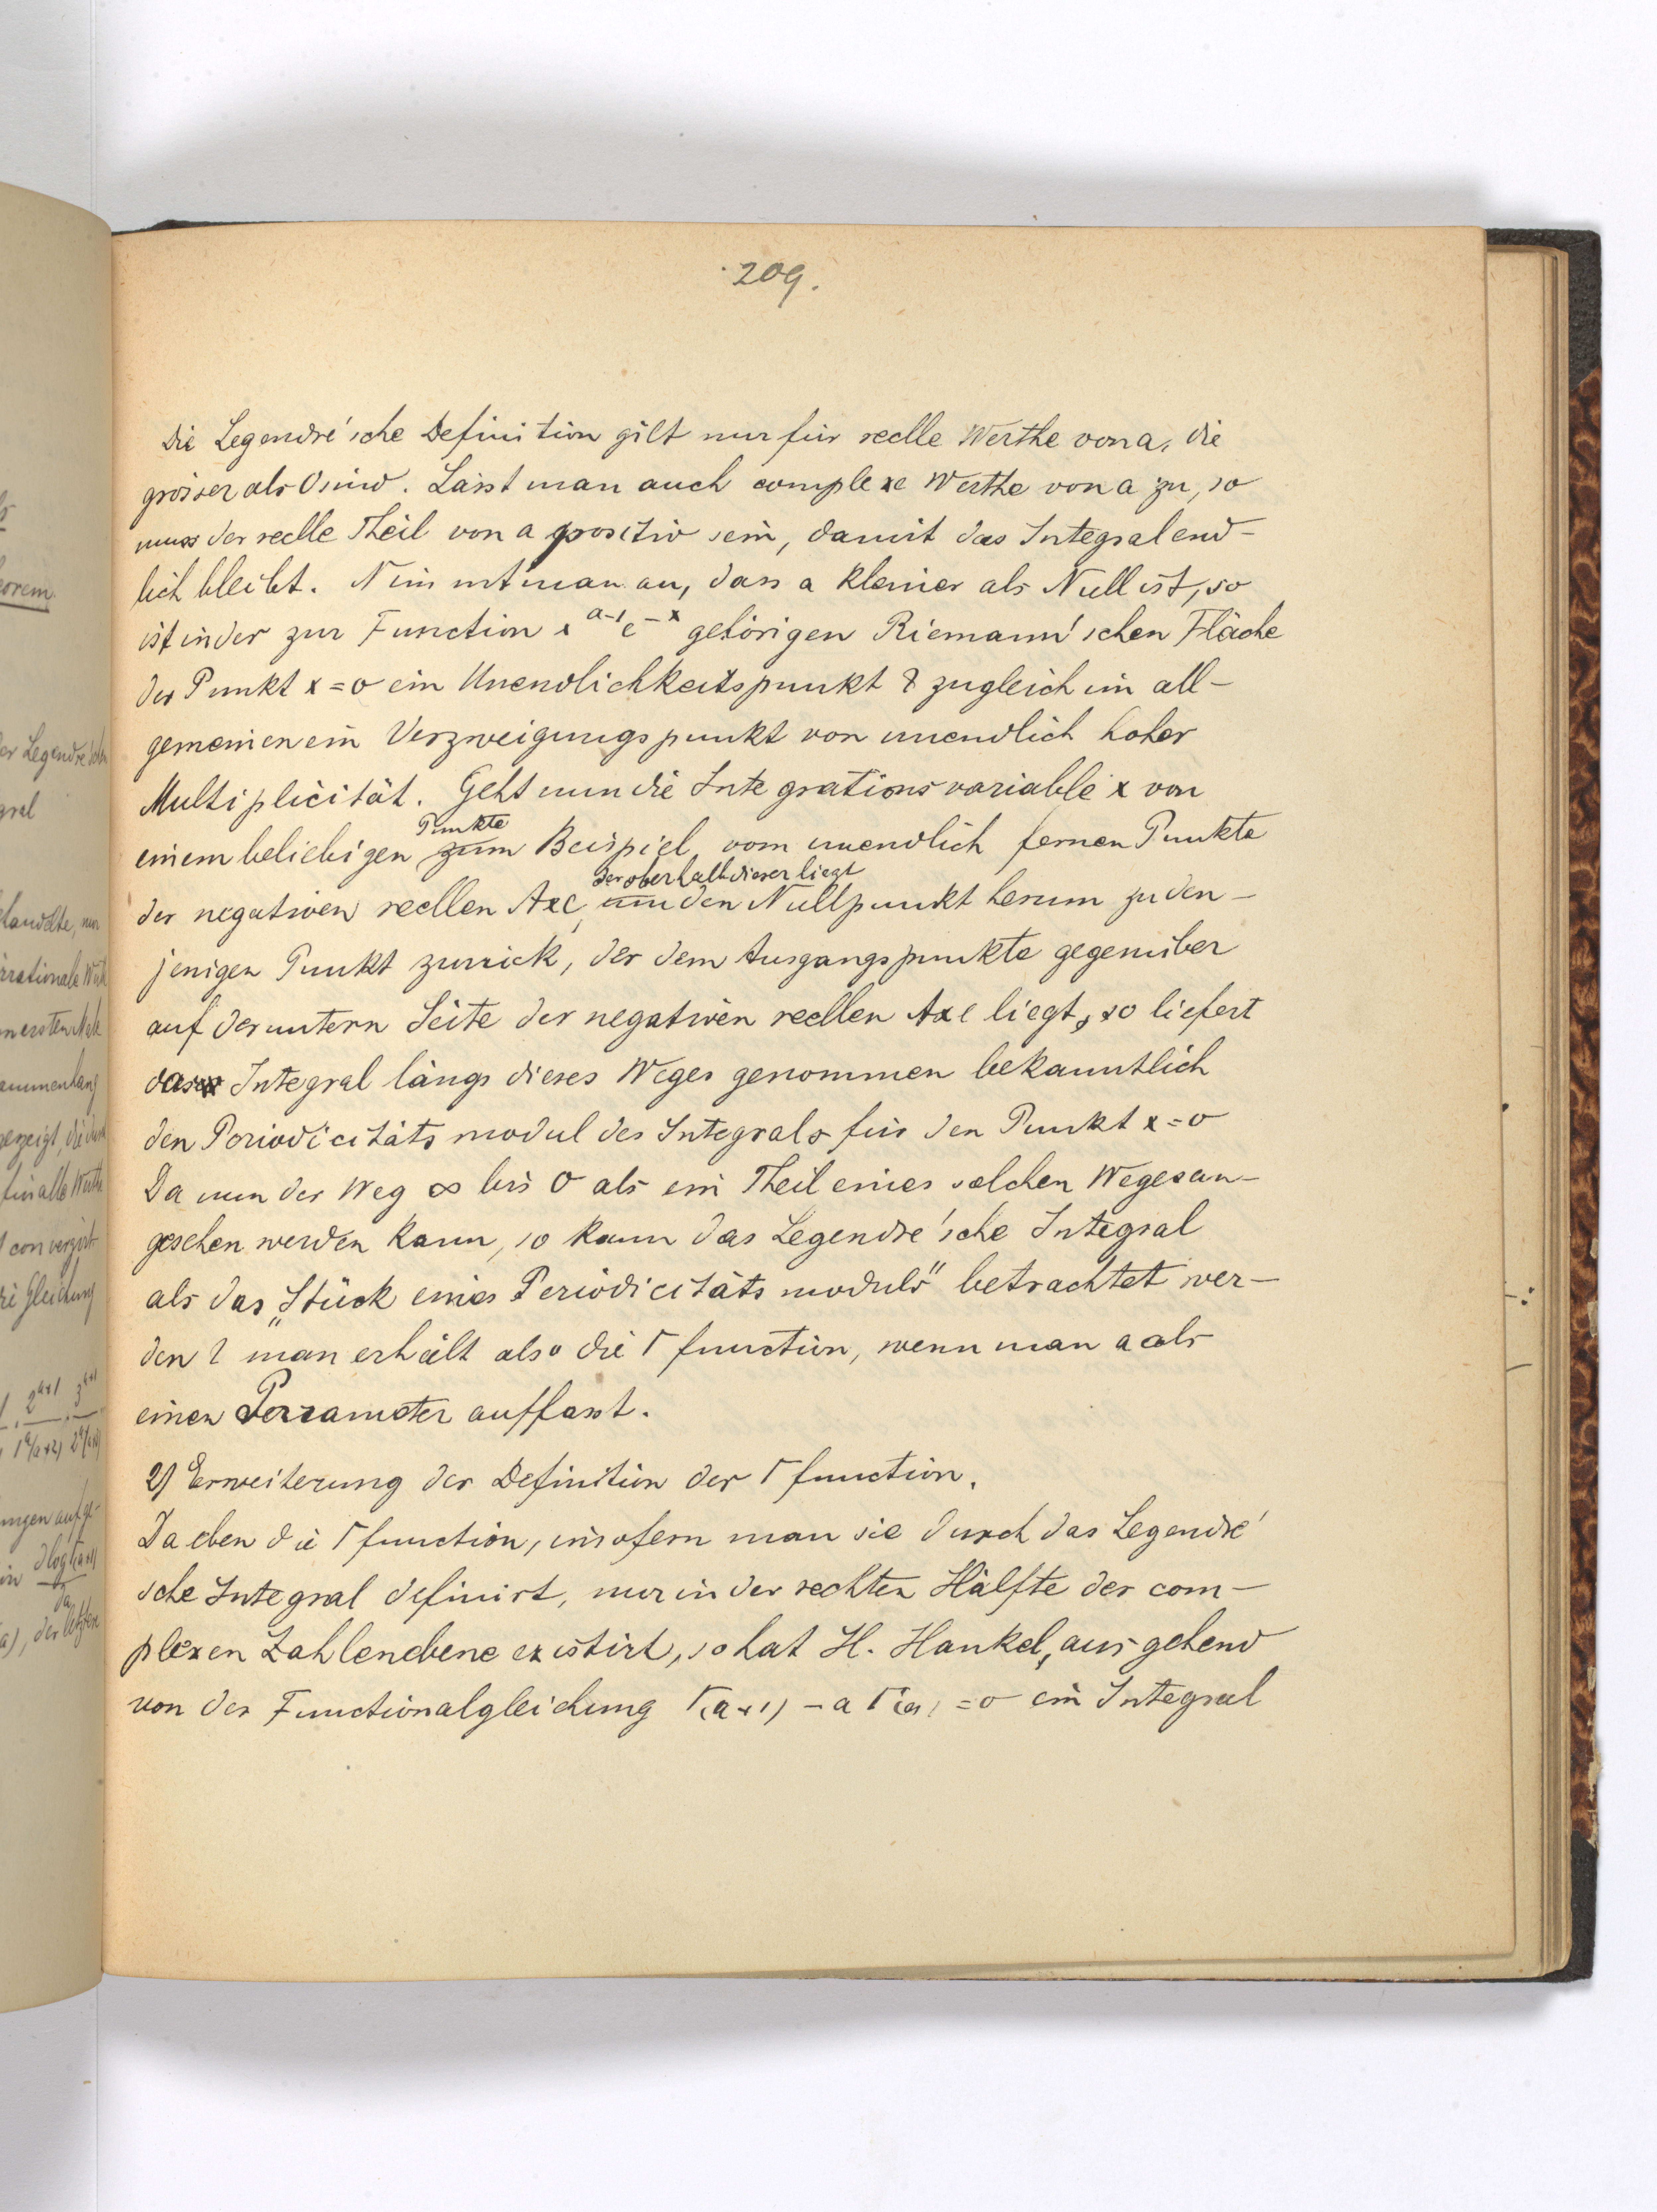 209.
Die Legendre'sche Definition gilt nur für reelle Werthe von a, die
grösser als 0 sind. Lässt man auch complexe Werthe von a zu, so
muss der reelle Theil von a positiv sein, damit das Integral end-
lich bleibt. Nimmt man an, dass a kleiner als Null ist, so
ist in der zur Function x^{a-1} e^{-x} gehörigen Riemann'schen Fläche
der Punkt x = 0 ein Unendlichkeitspunkt & zugleich im all-
gemeinen ein Verzweigungspunkt von unendlich hoher
Multiplicität. Geht nun die Integrationsvariable x von
Punkte
einem beliebigen zum Beispiel vom unendlich fernen Punkte
der oberhalb dieser liegt
der negativen reellen Axe, um den Nullpunkt herum zu den-
jenigen Punkt zurück, der dem Ausgangspunkte gegenüber
auf der untern Seite der negativen reellen Axe liegt, so liefert
das Integral längs dieses Weges genommen bekanntlich
den Periodicitätsmodul des Integrals für den Punkt x = 0
Da nun der Weg ∞ bis 0 als ein Theil eines solchen Weges an-
gesehen werden kann, so kann das Legendre'sche Integral
als das „Stück eines Periodicitätsmoduls" betrachtet wer-
den & man erhält also die Γ function, wenn man a als
einen Parameter auffasst.
2) Erweiterung der Definition der Γ function.
Da eben die Γ function, insofern man sie durch das Legendre'
sche Integral definirt, nur in der rechten Hälfte der com-
plexen Zahlenebene existirt, so hat H. Hankel, ausgehend
von der Functionalgleichung Γ(a+1) - a Γ(a) = 0 ein Integral